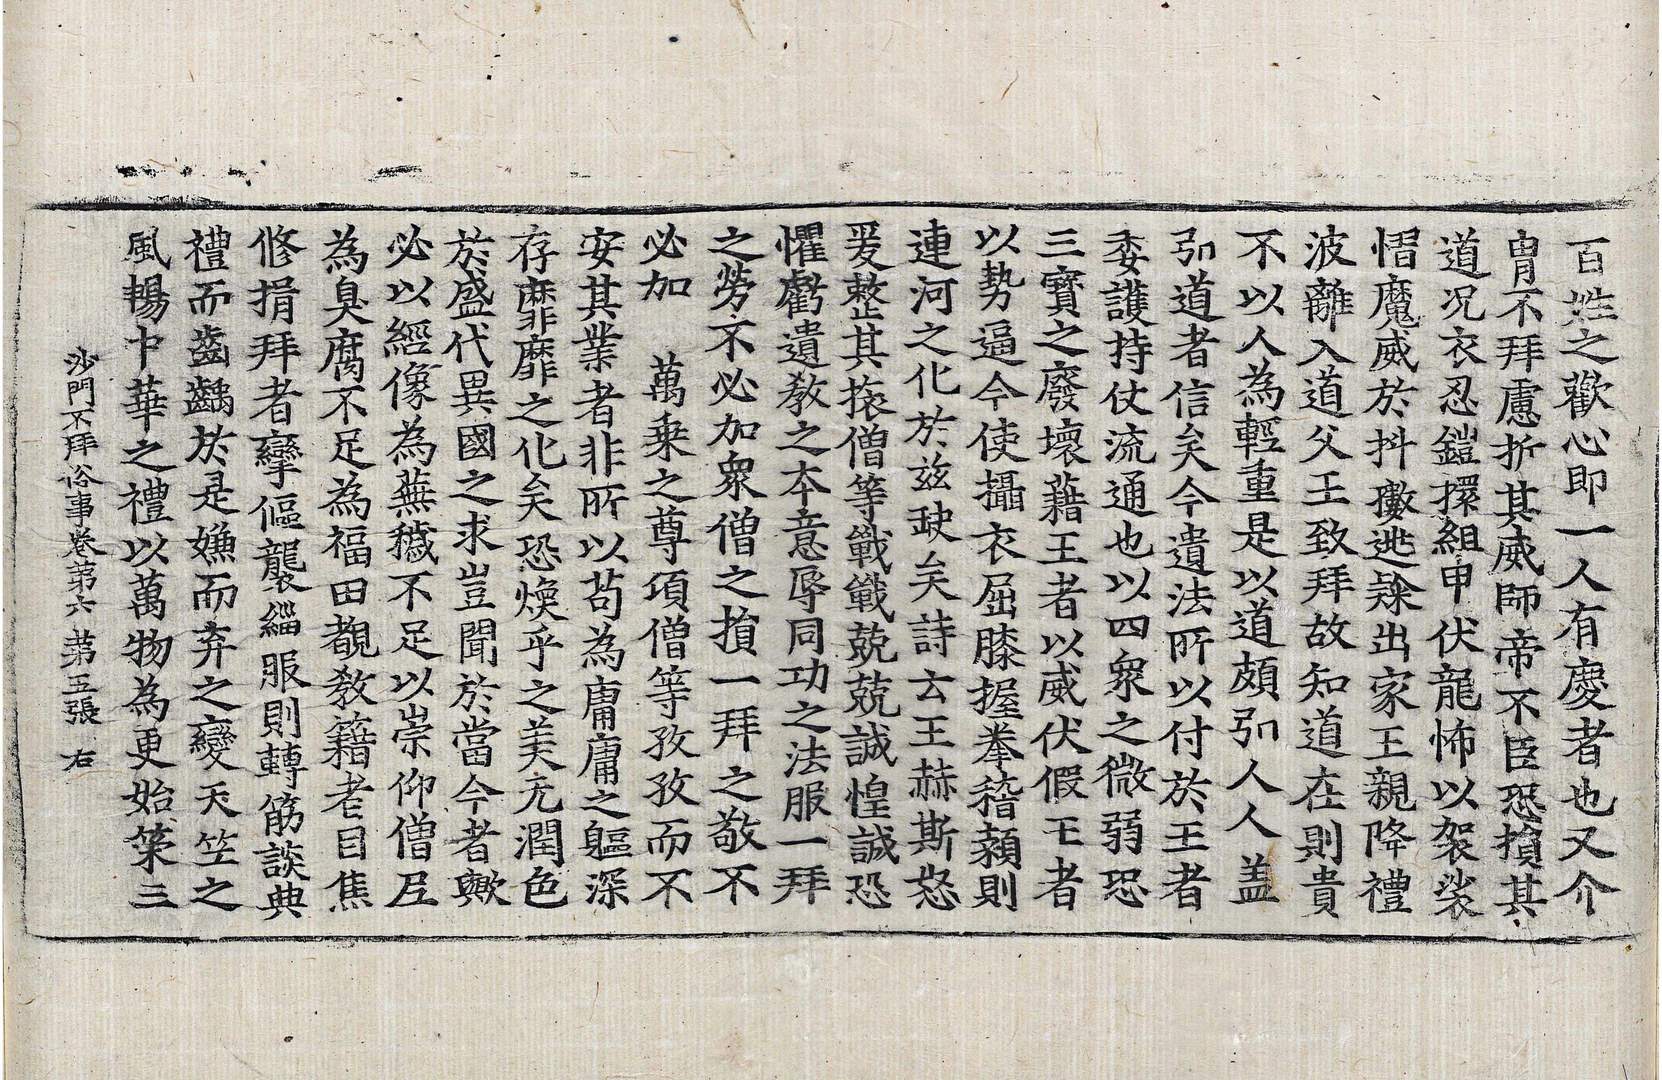 百姓之歡心即一人有慶者也又介
胄不拜慮折其威師帝不臣恐損其
道况衣忍鎧擐組甲伏龍怖以袈裟
慴魔威於抖擻逃隸出家王親降禮
波離入道父王致拜故知道在則貴
不以人為輕重是以道頗引人人 盖
引道者信矣今遺法所以付於王者
委護持仗流通也以四衆之微弱恐
三寶之廢壞藉王者以威伏假王者
以勢逼今使攝衣屈膝握拳稽顙則
連河之化於兹缺矣詩云王赫斯怒
爰整其旅僧等戰戰兢兢誠惶誠恐
懼虧遺教之本意辱同功之法服一拜
之勞不必加衆僧之損一拜之敬不
必加 萬乗之尊項僧等孜孜而不
安其業者非所以苟為庸庸之軀深
存靡靡之化矣恐煥乎之美冘潤色
於盛代異國之求豈聞於當今者歟
必以經像為蕪穢不足以崇仰僧尼
為臭腐不足為福田覩教籍老目焦
修捐拜者攣傴襲緇服則轉筋談典
禮而齒齲於是嫌而弃之變天竺之
風暢中華之禮以萬物為更始榘三
沙門不拜俗事卷第六 苐五張 右